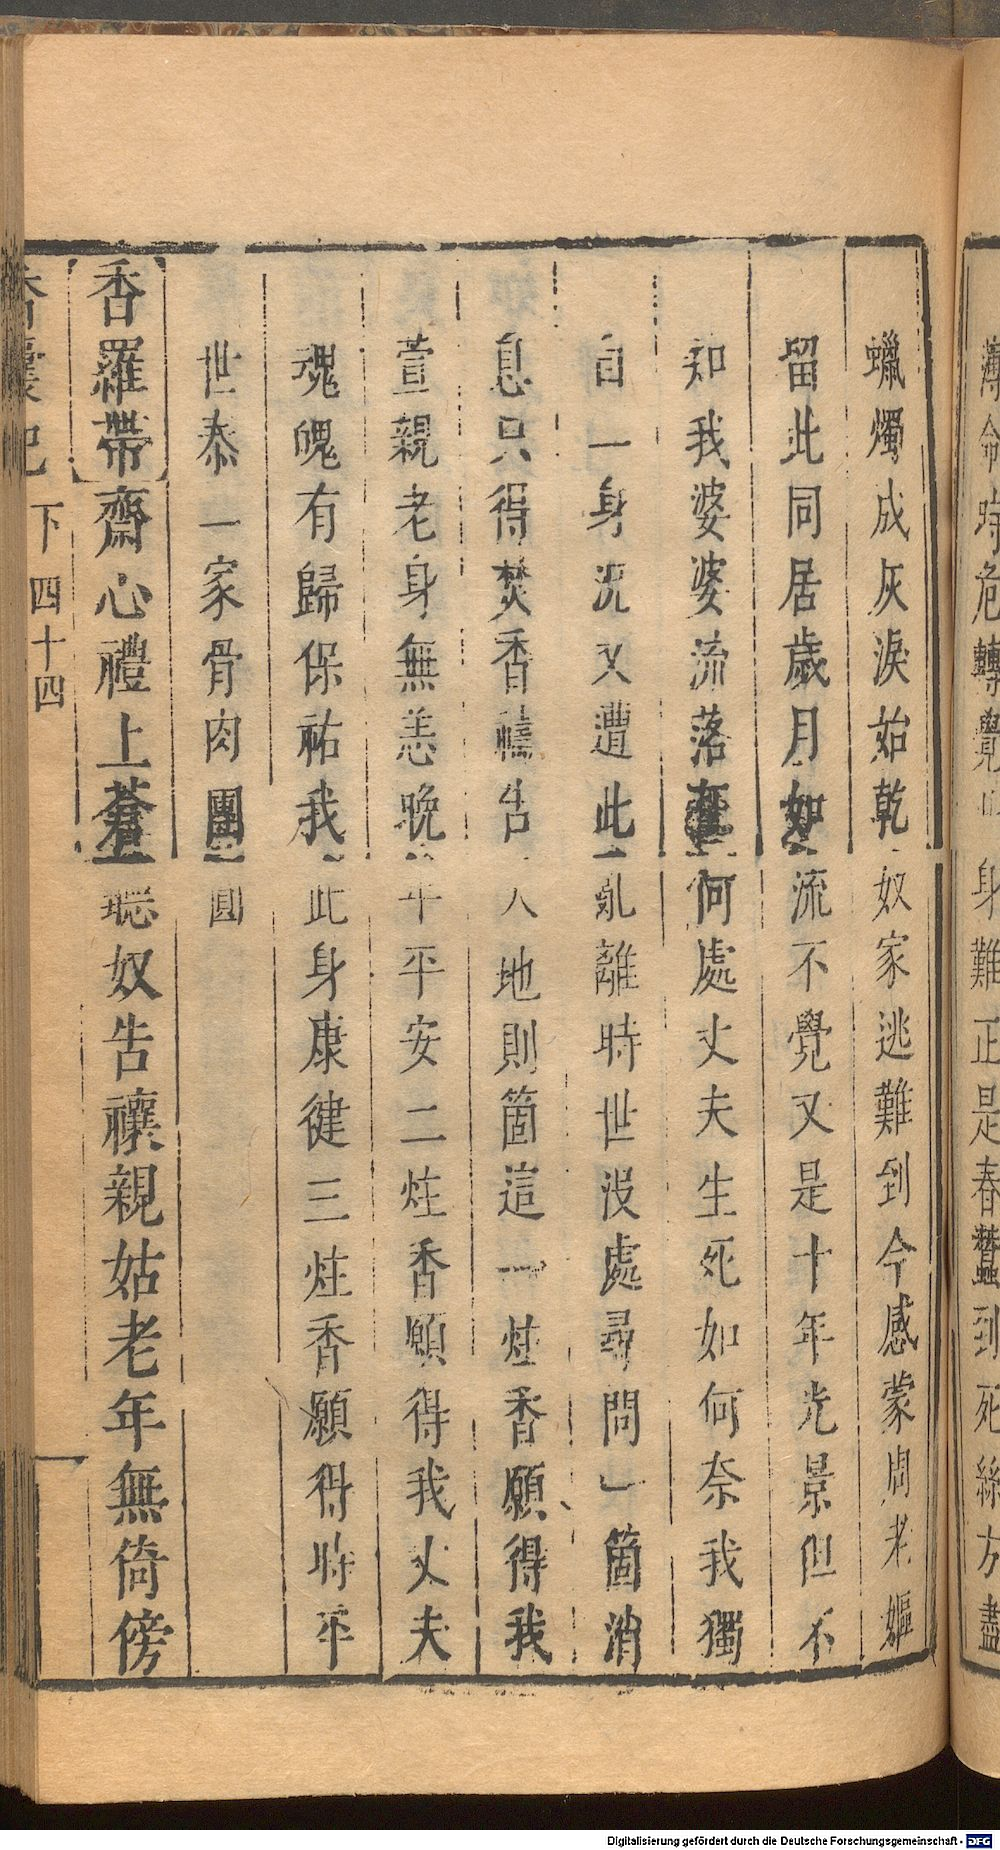 薄命時危轉覺　身難正是春蠶到死絲方盡
蠟燭成灰淚始乾奴家逃難到今感蒙周老嫗
留此同居歲月如流不覺又是十年光景但不
知我婆婆流落在何處丈夫生死如何奈我獨
自一身况又遭此亂離時世没處尋問一箇消
息只得焚香禱告天地則箇這一炷香願得我
萱親老身無恙晚年平安二炷香願得我丈夫
魂魄有歸保祐我此身康健三炷香願得時平
世泰一家骨肉團圓
香羅帶齋心禮上蒼聽奴告禳親姑老年無倚傍
香囊記　下　四十四
Digitalisierung gefördert durch die Deutsche Forschungsgemeinschaft - DFG